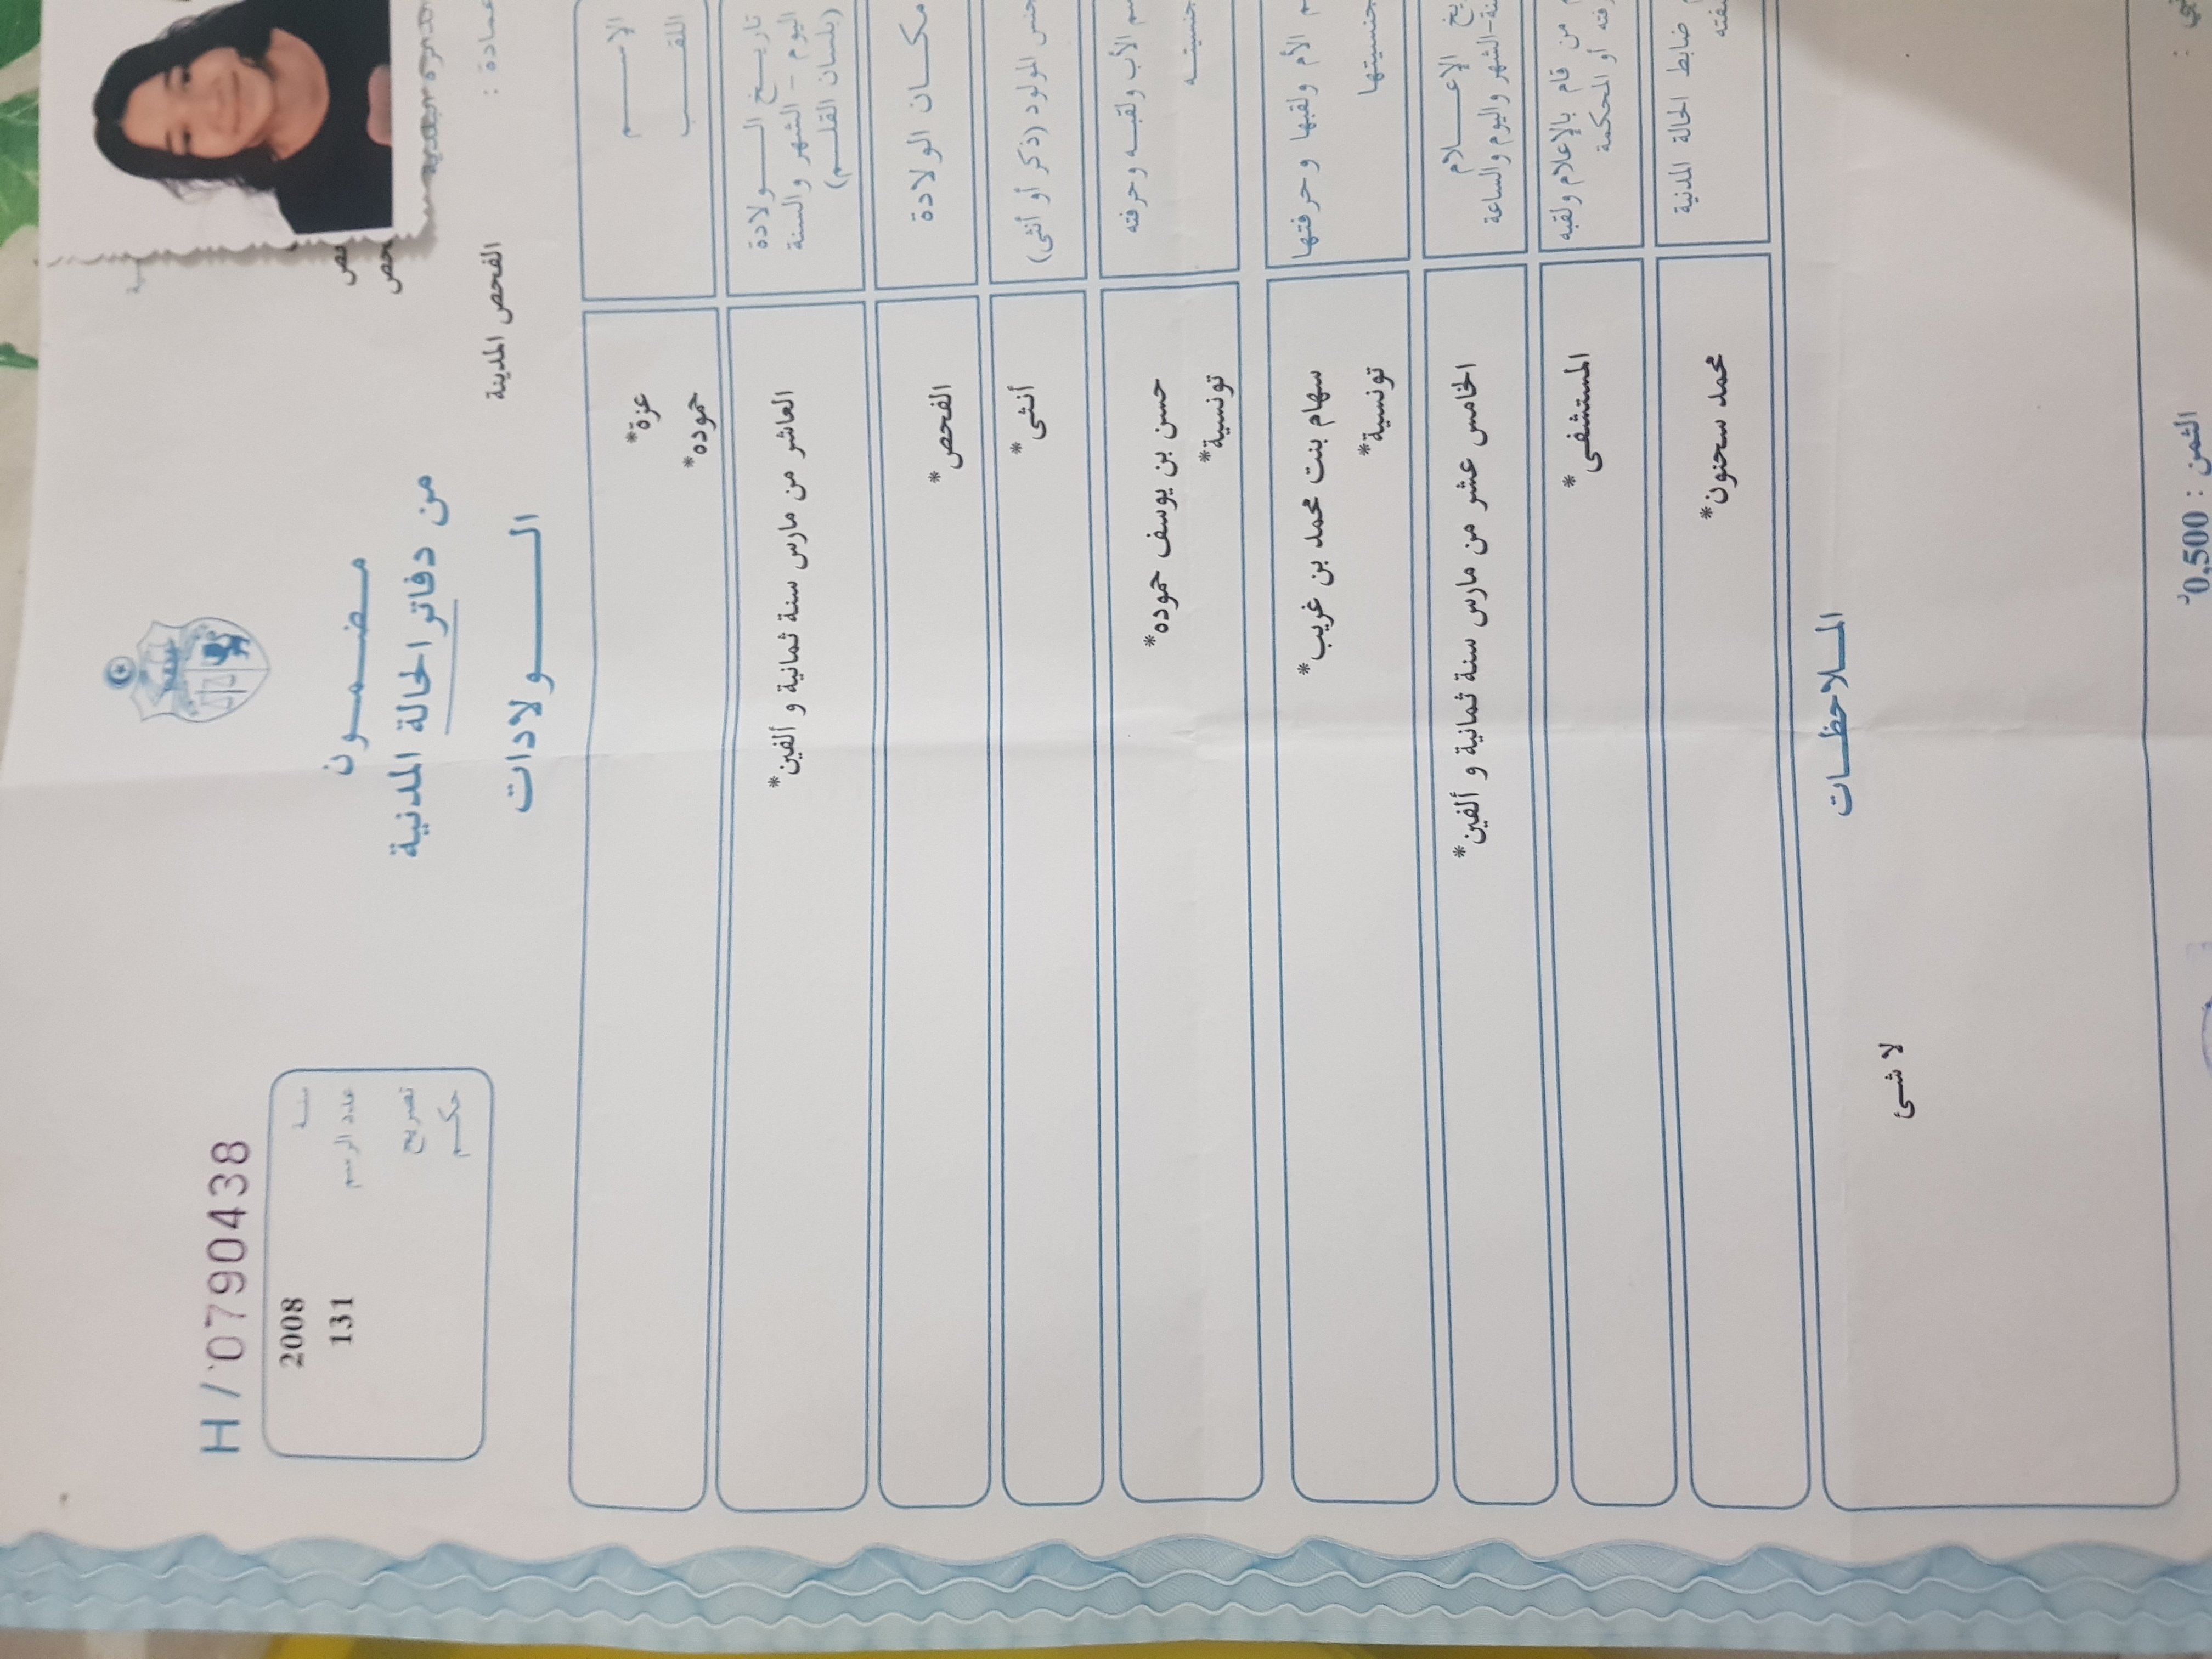 H / 0790438
سنة 2008
عدد الرسم 131
تصريح
حكم
مضمون
من دفاتر الحالة المدنية
الولادات
عمادة :
الفحص المدينة
الإسم عزة*
اللقب حموده*
تاريخ الولادة
اليوم - الشهر والسنة
(بلسان القلم)
العاشر من مارس سنة ثمانية و ألفين*
مكان الولادة الفحص*
المولود (ذكر أو أنثى) أنثى*
الأب ولقبه وحرفته حسن بن يوسف حموده*
تونسية*
الأم ولقبها وحرفتها سهام بنت محمد بن غريب*
جنسيتها تونسية*
الإعلام
والشهر واليوم والساعة
الخامس عشر من مارس سنة ثمانية و ألفين*
من قام بالإعلام ولقبه المستشفى*
أو المحكمة
ضابط الحالة المدنية محمد سحنون*
الملاحظات
لا شئ
الثمن : 0,500د